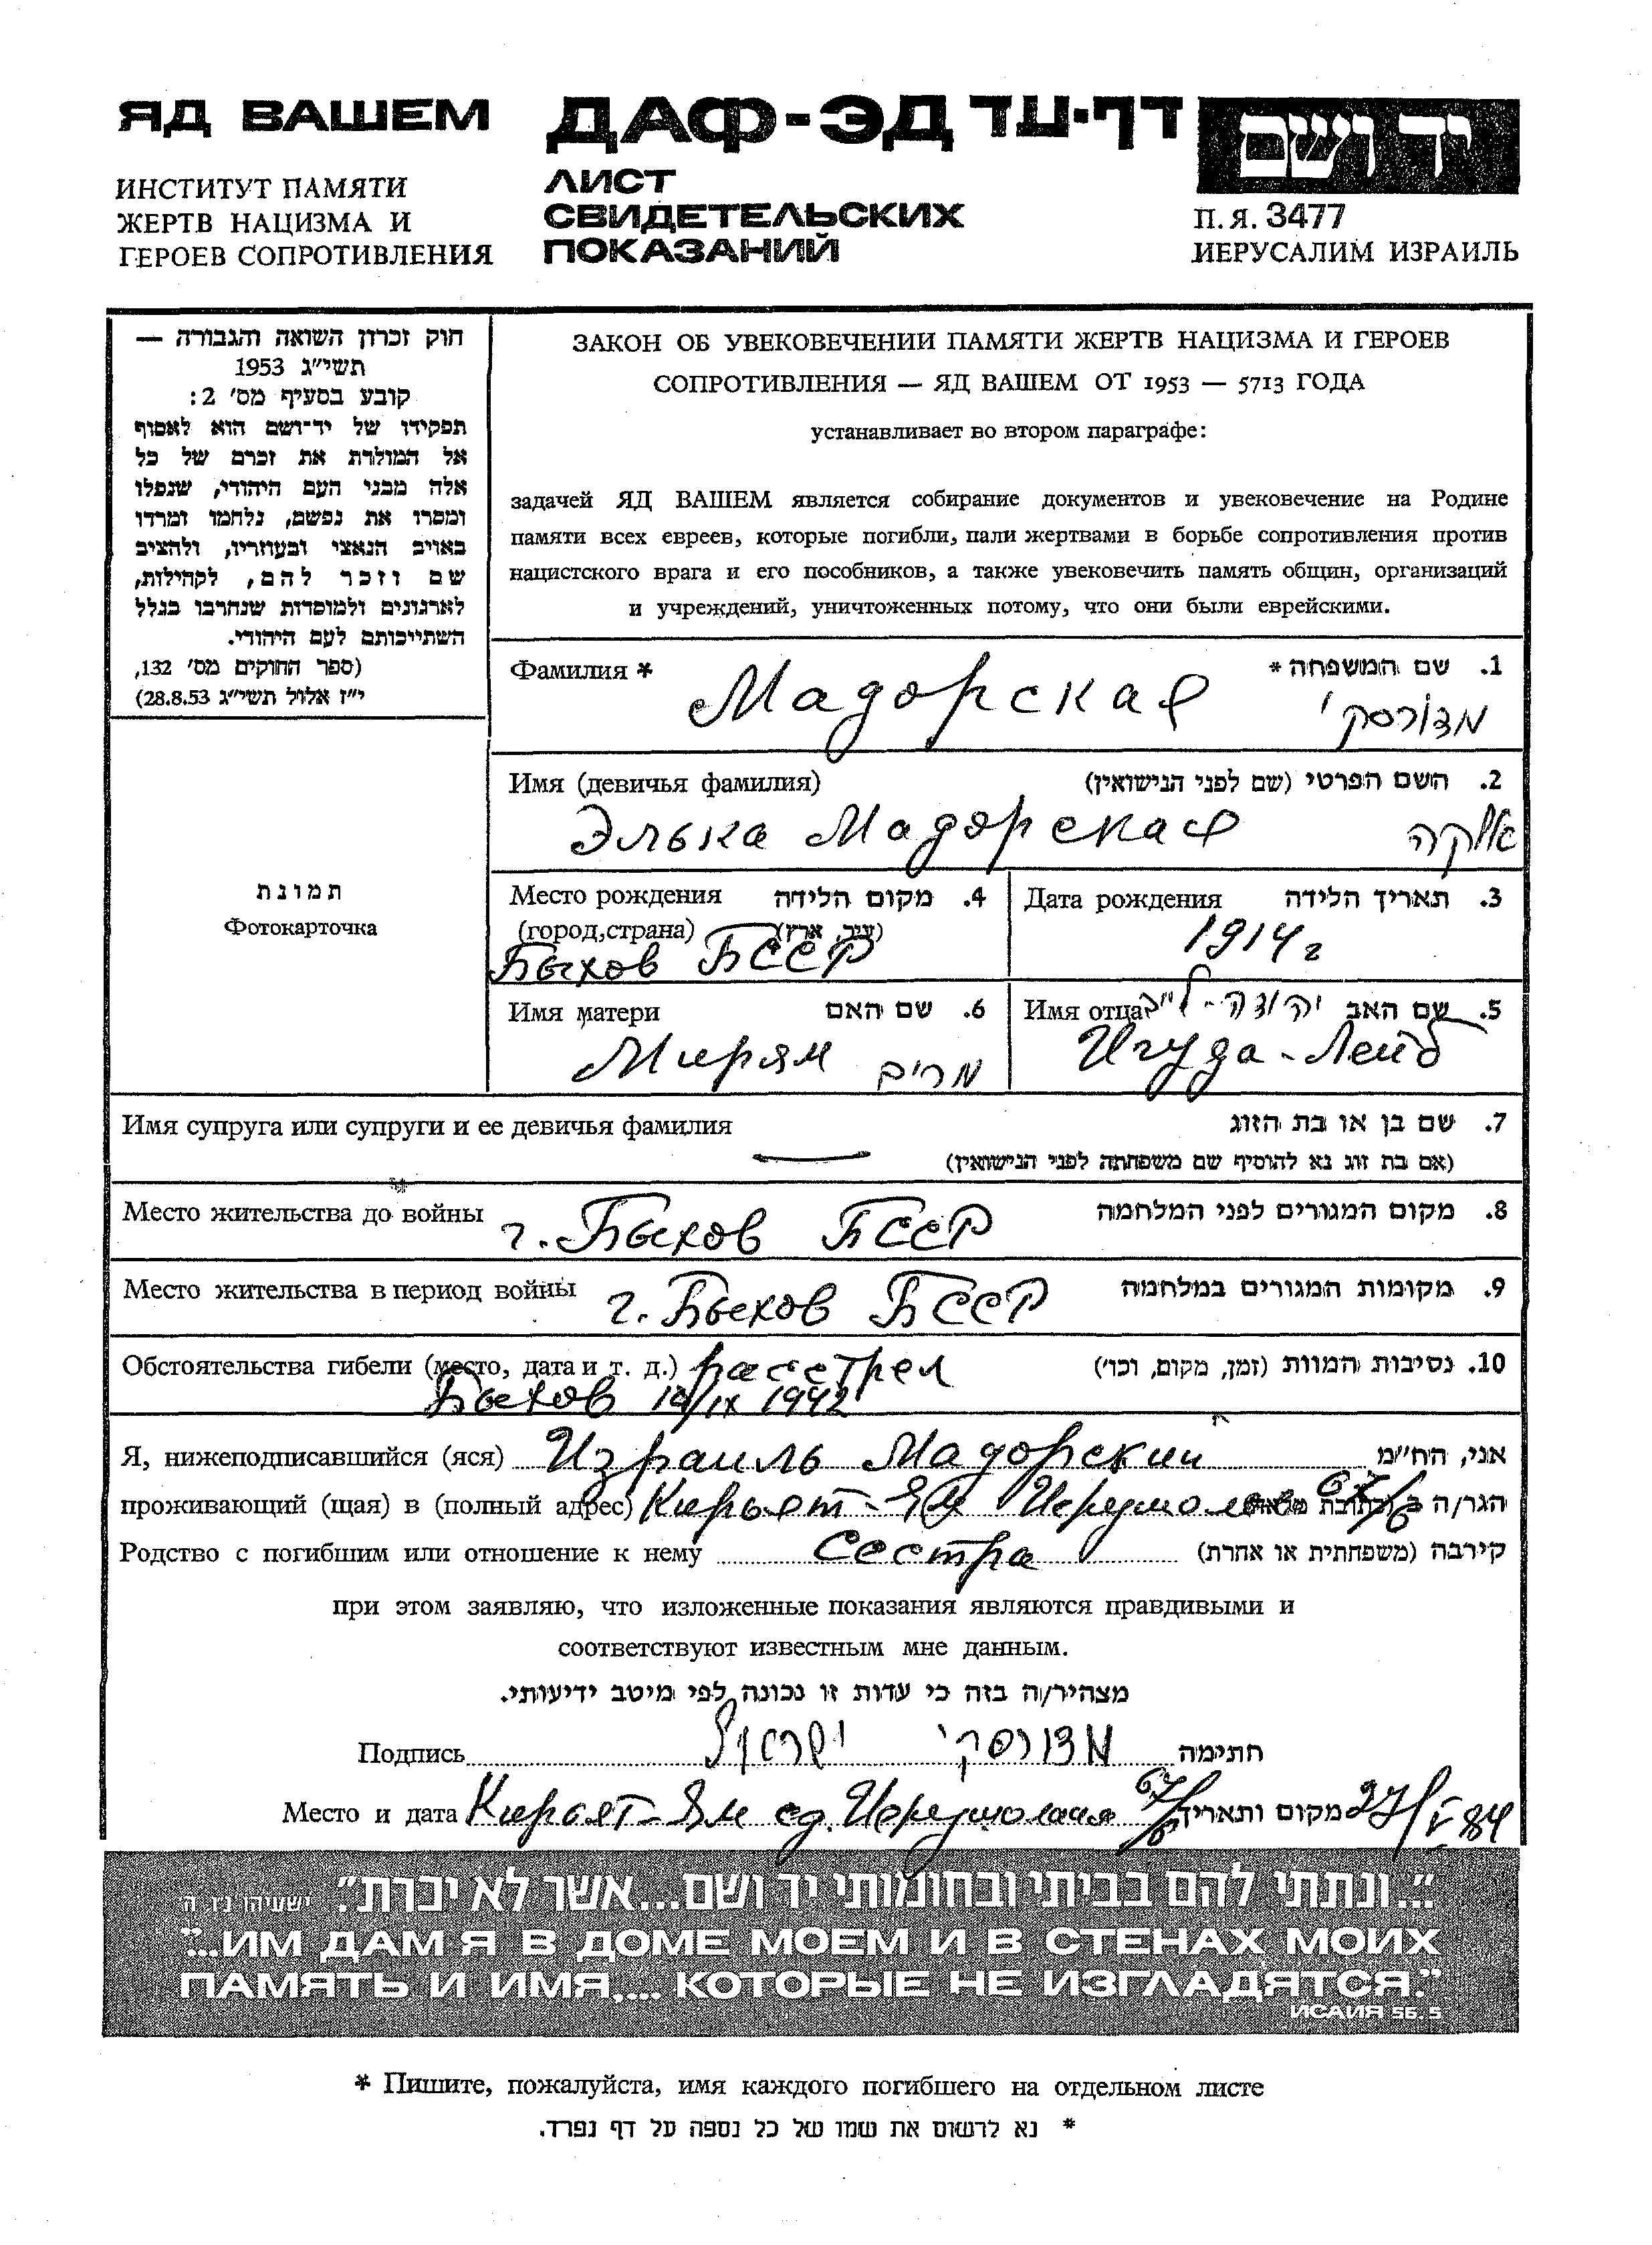 ЯД ВАШЕМ
ДАФ-ЭД דף-עד
יד ושם
ИНСТИТУТ ПАМЯТИ
ЖЕРТВ НАЦИЗМА И
ГЕРОЕВ СОПРОТИВЛЕНИЯ
ЛИСТ
СВИДЕТЕЛЬСКИХ
ПОКАЗАНИЙ
П.Я. 3477
ИЕРУСАЛИМ ИЗРАИЛЬ
חוק זכרון השואה והגבורה —
תשי״ג 1953
קובע בסעיף מס׳ 2:
תפקידו של יד־ושם הוא לאסוף
אל המולדת את זכרם של כל
אלה מבני העם היהודי, שנפלו
ומסרו את נפשם, נלחמו ומרדו
באויב הנאצי ובעוזריו, ולהציב
שם וזכר להם, לקהילות,
לארגונים ולמוסדות שנחרבו בגלל
השתייכותם לעם היהודי.
(ספר החוקים מס׳ 132,
י״ז אלול תשי״ג 28.8.53)
ЗАКОН ОБ УВЕКОВЕЧЕНИИ ПАМЯТИ ЖЕРТВ НАЦИЗМА И ГЕРОЕВ
СОПРОТИВЛЕНИЯ — ЯД ВАШЕМ ОТ 1953 — 5713 ГОДА
устанавливает во втором параграфе:
задачей ЯД ВАШЕМ является собирание документов и увековечение на Родине
памяти всех евреев, которые погибли, пали жертвами в борьбе сопротивления против
нацистского врага и его пособников, а также увековечить память общин, организаций
и учреждений, уничтоженных потому, что они были еврейскими.
Фамилия * 1. שם המשפחה *
Мадорская מדורסקי
Имя (девичья фамилия) 2. השם הפרטי (שם לפני הנישואין)
Элька Мадорская אלקה
תמונת
Фотокарточка
Место рождения 4. מקום הלידה
(город,страна) (עיר, ארץ)
Быхов БССР
Дата рождения 3. תאריך הלידה
1914 г
Имя матери 6. שם האם
Мирям מרים
Имя отца 5. שם האב יהודה-לייב
Игуда-Лейб
Имя супруга или супруги и ее девичья фамилия 7. שם בן או בת הזוג
(אם בת זוג נא להוסיף שם משפחתה לפני הנישואין)
Место жительства до войны г. Быхов БССР 8. מקום המגורים לפני המלחמה
Место жительства в период войны г. Быхов БССР 9. מקומות המגורים במלחמה
Обстоятельства гибели (место, дата и т. д.) расстрел 10. נסיבות המוות (זמן, מקום, וכו׳)
Быхов /IX 1942
Я, нижеподписавшийся (яся) Израиль Мадорский אני, הח״מ
проживающий (щая) в (полный адрес) Кирьят-Ям 67/6 הגר/ה
Родство с погибшим или отношение к нему Сестра קירבה (משפחתית או אחרת)
при этом заявляю, что изложенные показания являются правдивыми и
соответствуют известным мне данным.
מצהיר/ה בזה כי עדות זו נכונה לפי מיטב ידיעותי.
Подпись מדורסקי ישראל חתימה
Место и дата Кирьят-Ям 67/6 מקום ותאריך 27/V 84
"..ונתתי להם בביתי ובחומותי יד ושם...אשר לא יכרת". ישעיהו נ״ו ה׳
"...ИМ ДАМ Я В ДОМЕ МОЕМ И В СТЕНАХ МОИХ
ПАМЯТЬ И ИМЯ.... КОТОРЫЕ НЕ ИЗГЛАДЯТСЯ."
ИСАИЯ 56.5
* Пишите, пожалуйста, имя каждого погибшего на отдельном листе
* נא לרשום את שמו של כל נספה על דף נפרד.